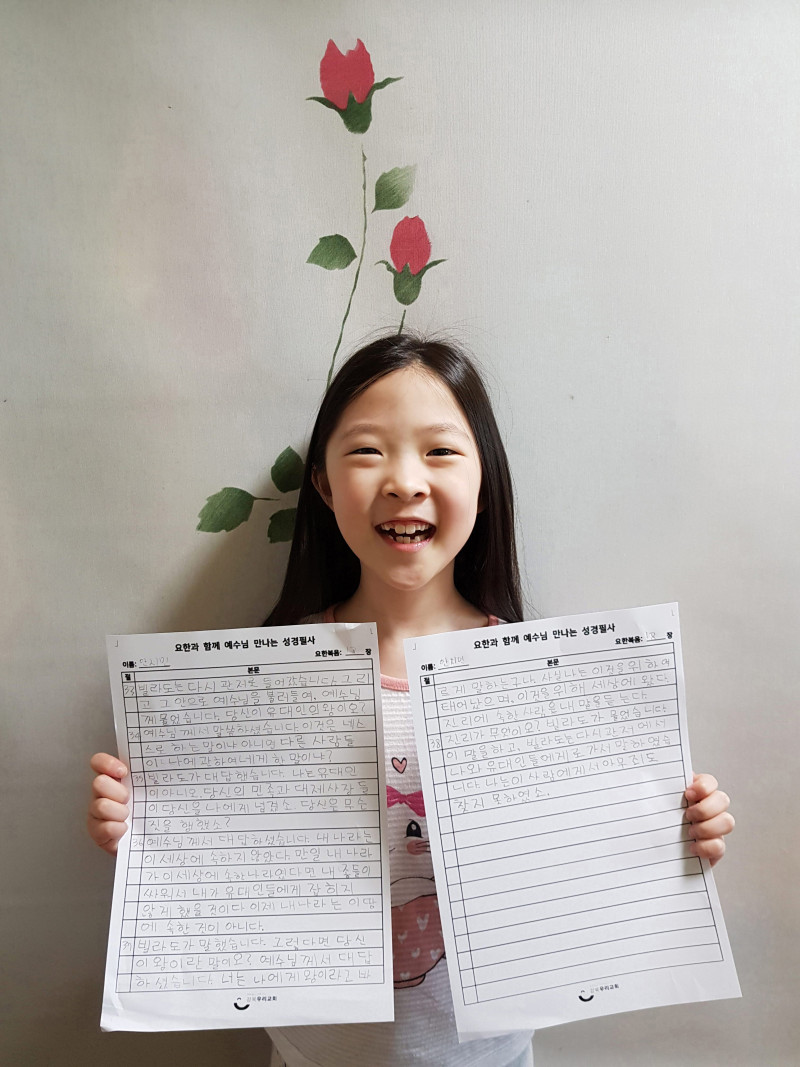 요한과 함께 예수님 만나는 성경필사
이름:
요한복음: 18 장
절 본문
33 빌라도는 다시 관저로 들어갔습니다. 그리
고 그 안으로 예수님을 불러들여, 예수님
께 물었습니다. 당신이 유대인의 왕이오?
34 예수님께서 말씀하셨습니다 이것은 네 스
스로 하는 말이냐 아니면 다른 사람들
이 나에 관하여 네게 한 말이냐?
35 빌라도가 대답했습니다. 나는 유대인
이 아니오. 당신의 민족과 대제사장들
이 당신을 나에게 넘겼소. 당신은 무슨
짓을 했소?
36 예수님께서 대답하셨습니다. 내 나라는
이 세상에 속하지 않았다. 만일 내 나라
가 이 세상에 속하나라였다면 내 종들이
싸워서 내가 유대인들에게 잡히지
않게 했을 것이다 이제 내 나라는 이 땅
에 속한 것이 아니다.
37 빌라도가 말했습니다. 그렇다면 당신
이 왕이란 말이오? 예수님께서 대답
하셨습니다. 너는 나에게 왕이라고 바
우리교회
요한과 함께 예수님 만나는 성경필사
이름:
요한복음: 18 장
절 본문
르게 말하는구나. 사실 나는 이것을 위하여
태어났으며, 이것을 위해 세상에 왔다
진리에 속한 사람은 내 말을 듣는다
38 진리가 무엇이오? 빌라도가 물었습니다
이 말을 하고, 빌라도는 다시 관저에서
나와 유대인들에게로 가서 말하였습
니다. 나는 이 사람에게서 아무 죄도
찾지 못하였소.
우리교회